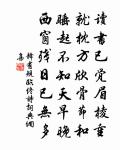 讀書已覺眉棱重
就枕方欣骨節和
睡起不知天早晚
西窗殘日已無多
詩詞典網
集